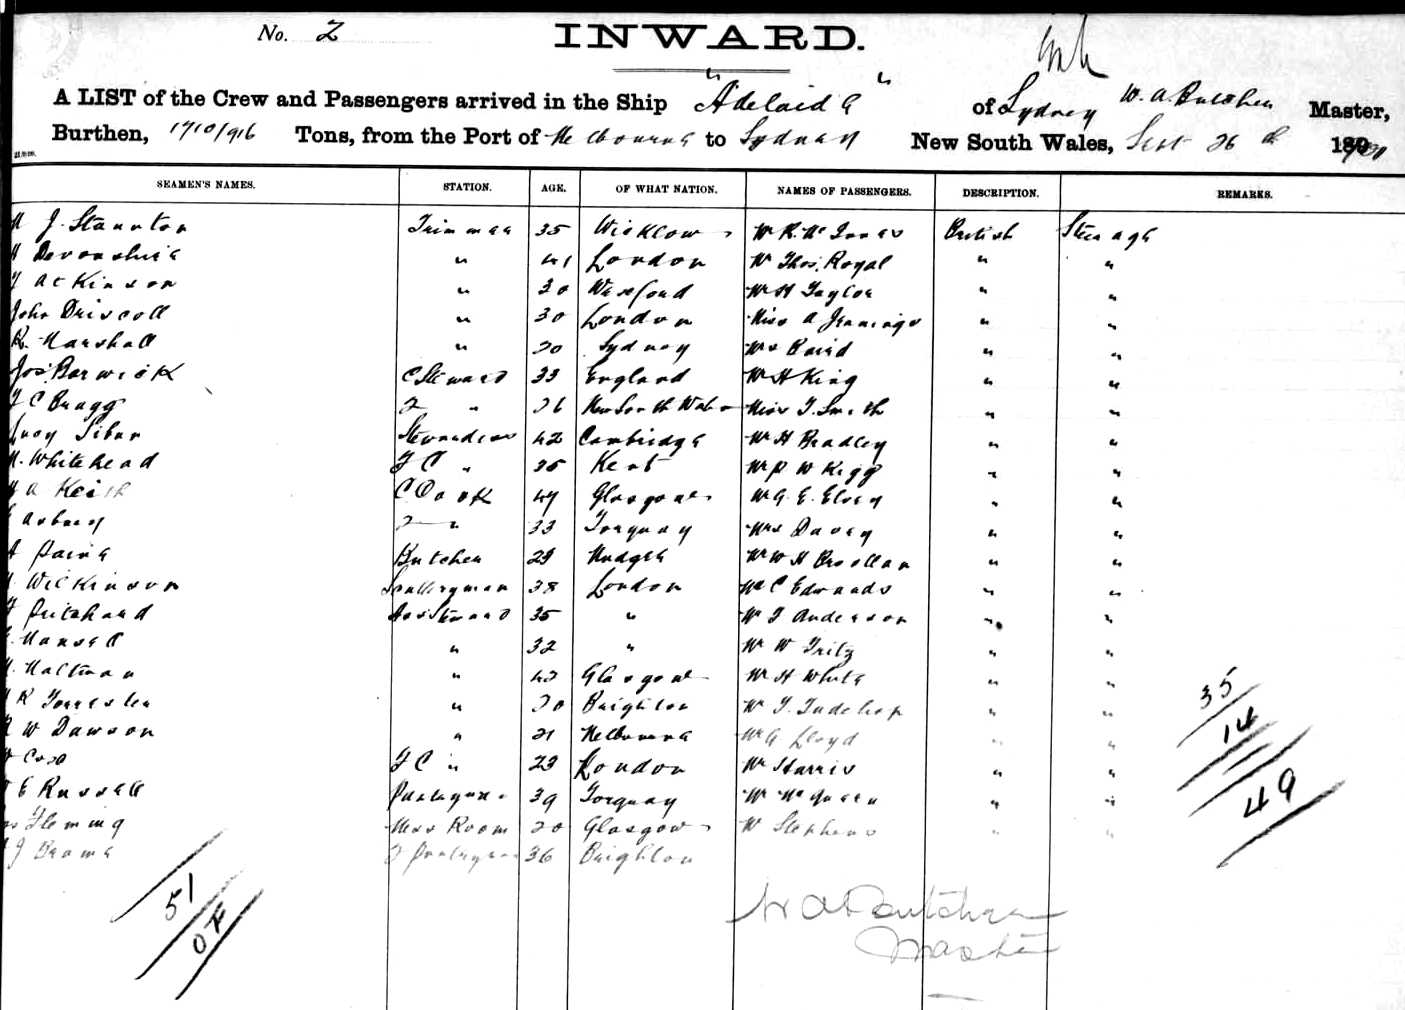 No. 2
INWARD.
A LIST of the Crew and Passengers arrived in the Ship "Adelaide" of Sydney W. A. Butcher Master,
Burthen, 1710/916 Tons, from the Port of Melbourne to Sydney New South Wales, Sept 26 th 189
SEAMEN'S NAMES. STATION. AGE. OF WHAT NATION. NAMES OF PASSENGERS. DESCRIPTION. REMARKS.
J. Staunton Trimmer 35 Wicklow Mr R. McInnes British Steerage
Devonshire " 41 London Mr Thos. Royal " "
Atkinson " 30 Wexford Mr H Taylor " "
John Driscoll " 30 London Miss A Jennings " "
R. Marshall " 20 Sydney Mrs Baird " "
Jos. Barwick C Steward 33 England Mr H King " "
C Bragg 2 " 26 New South Wales Miss T. Smith " "
Lucy Stewardess 42 Cambridge Mr H Bradley " "
Whitehead F C " 35 Kent Mr P W Kegg " "
A Keith C Cook 47 Glasgow Mr G. E. " "
Asbury 2 " 33 Torquay Mrs Davey " "
Paine Butcher 29 Mudgee Mr W H " "
Wilkinson Sculleryman 38 London Mr C Edwards " "
Pritchard Ass Steward 35 " Mr J Anderson " "
Mansell " 32 " Mr W Fritz " "
Maltman " 42 Glasgow Mr H White " "
R Forrester " 20 Brighton Mr T. Tudehop " "
W Dawson " 21 Melbourne Mr G Lloyd " "
Cox F C " 23 London Mr Harris " "
E Russell Pantryman 39 Torquay Mr McQueen " "
Fleming Mess Room 20 Glasgow Mr Stephens " "
J Brown 2 Pantryman 36 Brighton
35
14
49
51
W A Butcher
Master